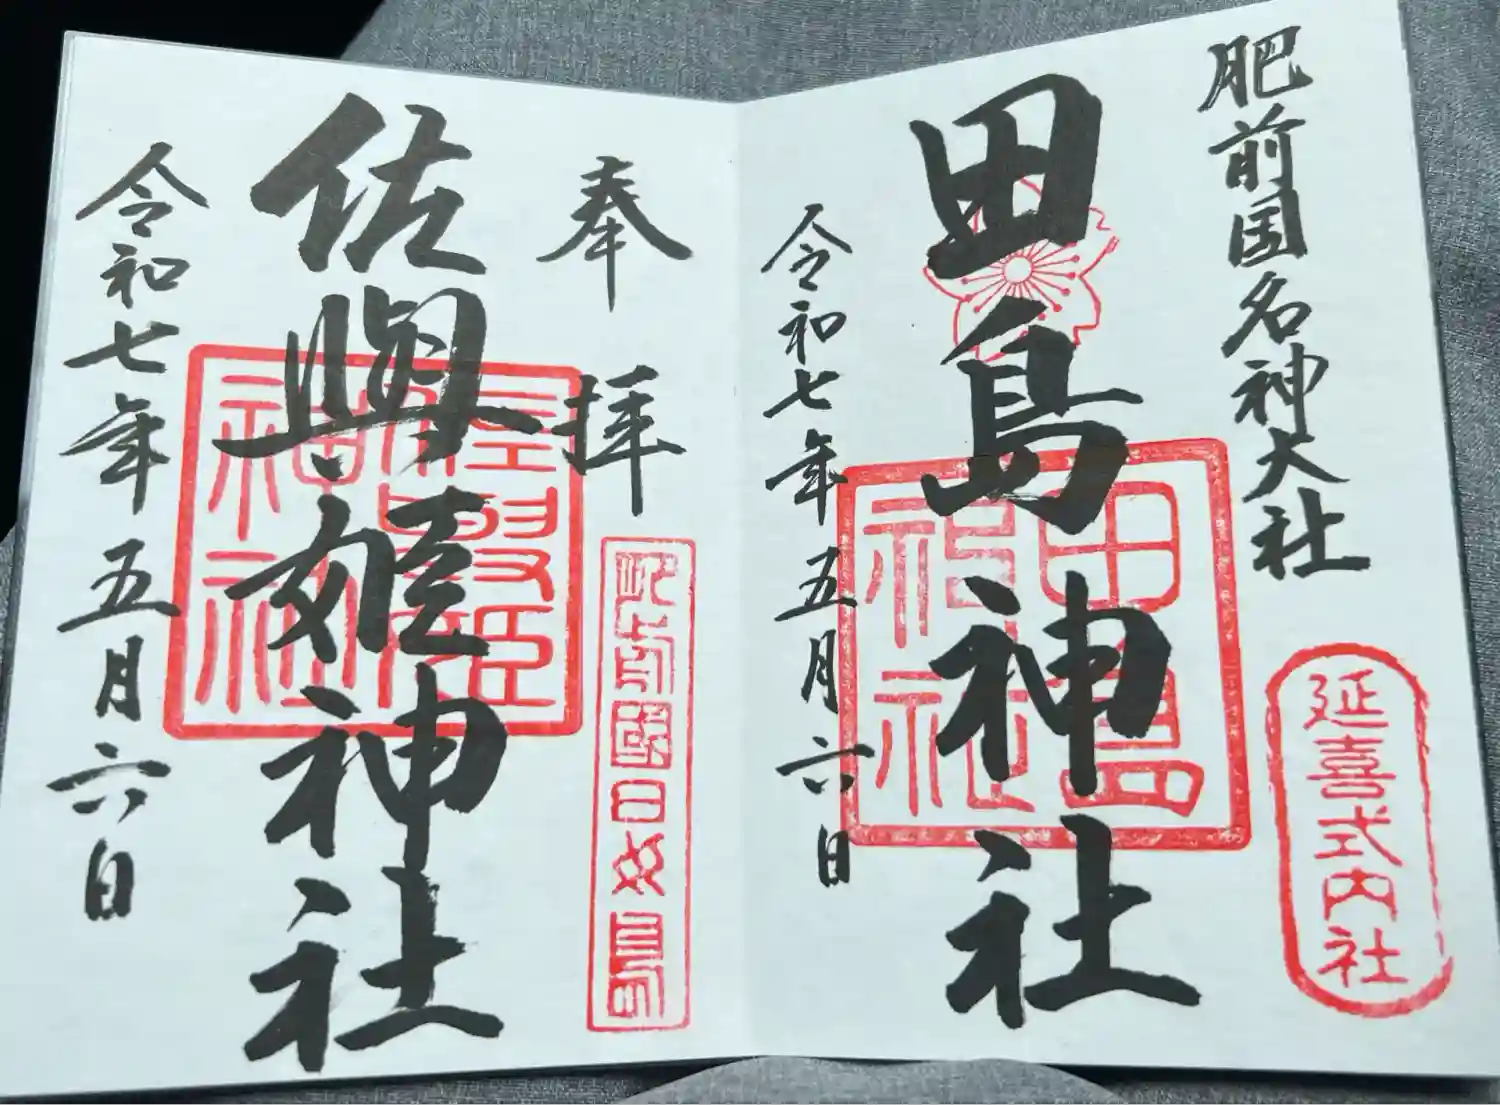 肥前国名神大社
延喜式内社
田島神社
田島神社
令和七年五月六日
奉拝
佐與姫神社
神社
令和七年五月六日